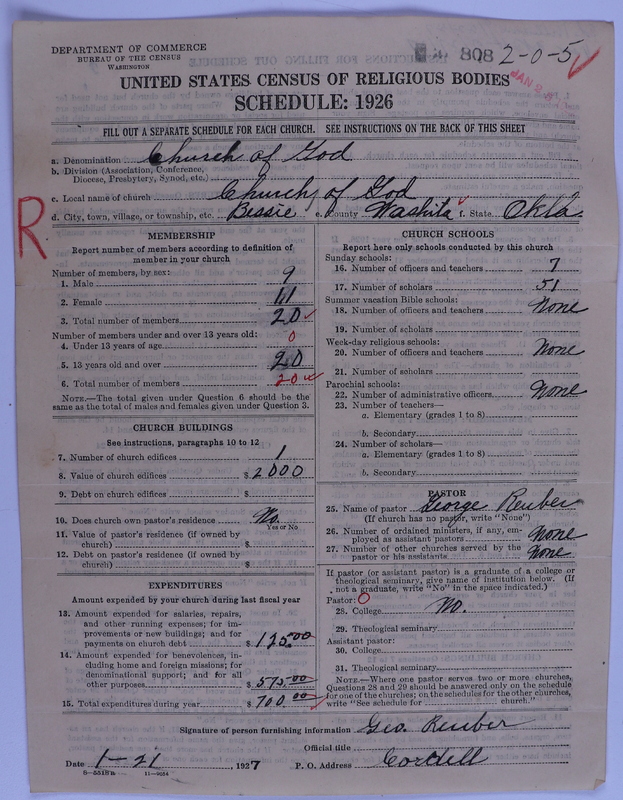 DEPARTMENT OF COMMERCE
BUREAU OF THE CENSUS
WASHINGTON
808 2-0-5 ✓
JAN 2
UNITED STATES CENSUS OF RELIGIOUS BODIES
SCHEDULE: 1926
FILL OUT A SEPARATE SCHEDULE FOR EACH CHURCH. SEE INSTRUCTIONS ON THE BACK OF THIS SHEET
a. Denomination Church of God
b. Division (Association, Conference, Diocese, Presbytery, Synod, etc.)
c. Local name of church Church of God
d. City, town, village, or township, etc. Bessie e. County Washita f. State Okla.
R
MEMBERSHIP
Report number of members according to definition of member in your church
Number of members, by sex:
1. Male 9
2. Female 11
3. Total number of members 20 ✓
Number of members under and over 13 years old:
4. Under 13 years of age 0
5. 13 years old and over 20
6. Total number of members 20 ✓
NOTE.—The total given under Question 6 should be same as the total of males and females given under Question 3.
CHURCH BUILDINGS
See instructions, paragraphs 10 to 12
7. Number of church edifices 1
8. Value of church edifices $ 2000
9. Debt on church edifices $
10. Does church own pastor's residence No.
Yes or No
11. Value of pastor's residence (if owned by church) $
12. Debt on pastor's residence (if owned by church) $
EXPENDITURES
Amount expended by your church during last fiscal year
13. Amount expended for salaries, repairs, and other running expenses; for improvements or new buildings; and for payments on church debt $ 125.00
14. Amount expended for benevolences, including home and foreign missions; for denominational support; and for all other purposes $ 575.00
15. Total expenditures during year $ 700.00
CHURCH SCHOOLS
Report here only schools conducted by this church
Sunday schools:
16. Number of officers and teachers 7
17. Number of scholars 51
Summer vacation Bible schools:
18. Number of officers and teachers None
19. Number of scholars
Week-day religious schools:
20. Number of officers and teachers None
21. Number of scholars
Parochial schools:
22. Number of administrative officers None
23. Number of teachers—
a. Elementary (grades 1 to 8)
b. Secondary
24. Number of scholars—
a. Elementary (grades 1 to 8)
b. Secondary
PASTOR
25. Name of pastor George Reuber
(If church has no pastor, write "None")
26. Number of ordained ministers, if any, employed as assistant pastors None
27. Number of other churches served by the pastor or his assistants None
If pastor (or assistant pastor) is a graduate of a college or theological seminary, give name of institution below. (If not a graduate, write "No" in the space indicated.)
Pastor: 0
28. College No.
29. Theological seminary
Assistant pastor:
30. College
31. Theological seminary
NOTE.—Where one pastor serves two or more churches, Questions 28 and 29 should be answered only on the schedule for one of the churches; on the schedules for the other churches, write "See schedule for church."
Signature of person furnishing information Geo. Reuber
Official title
Date 1-21, 1927 P. O. Address Cordell
8-5518a 11-9054